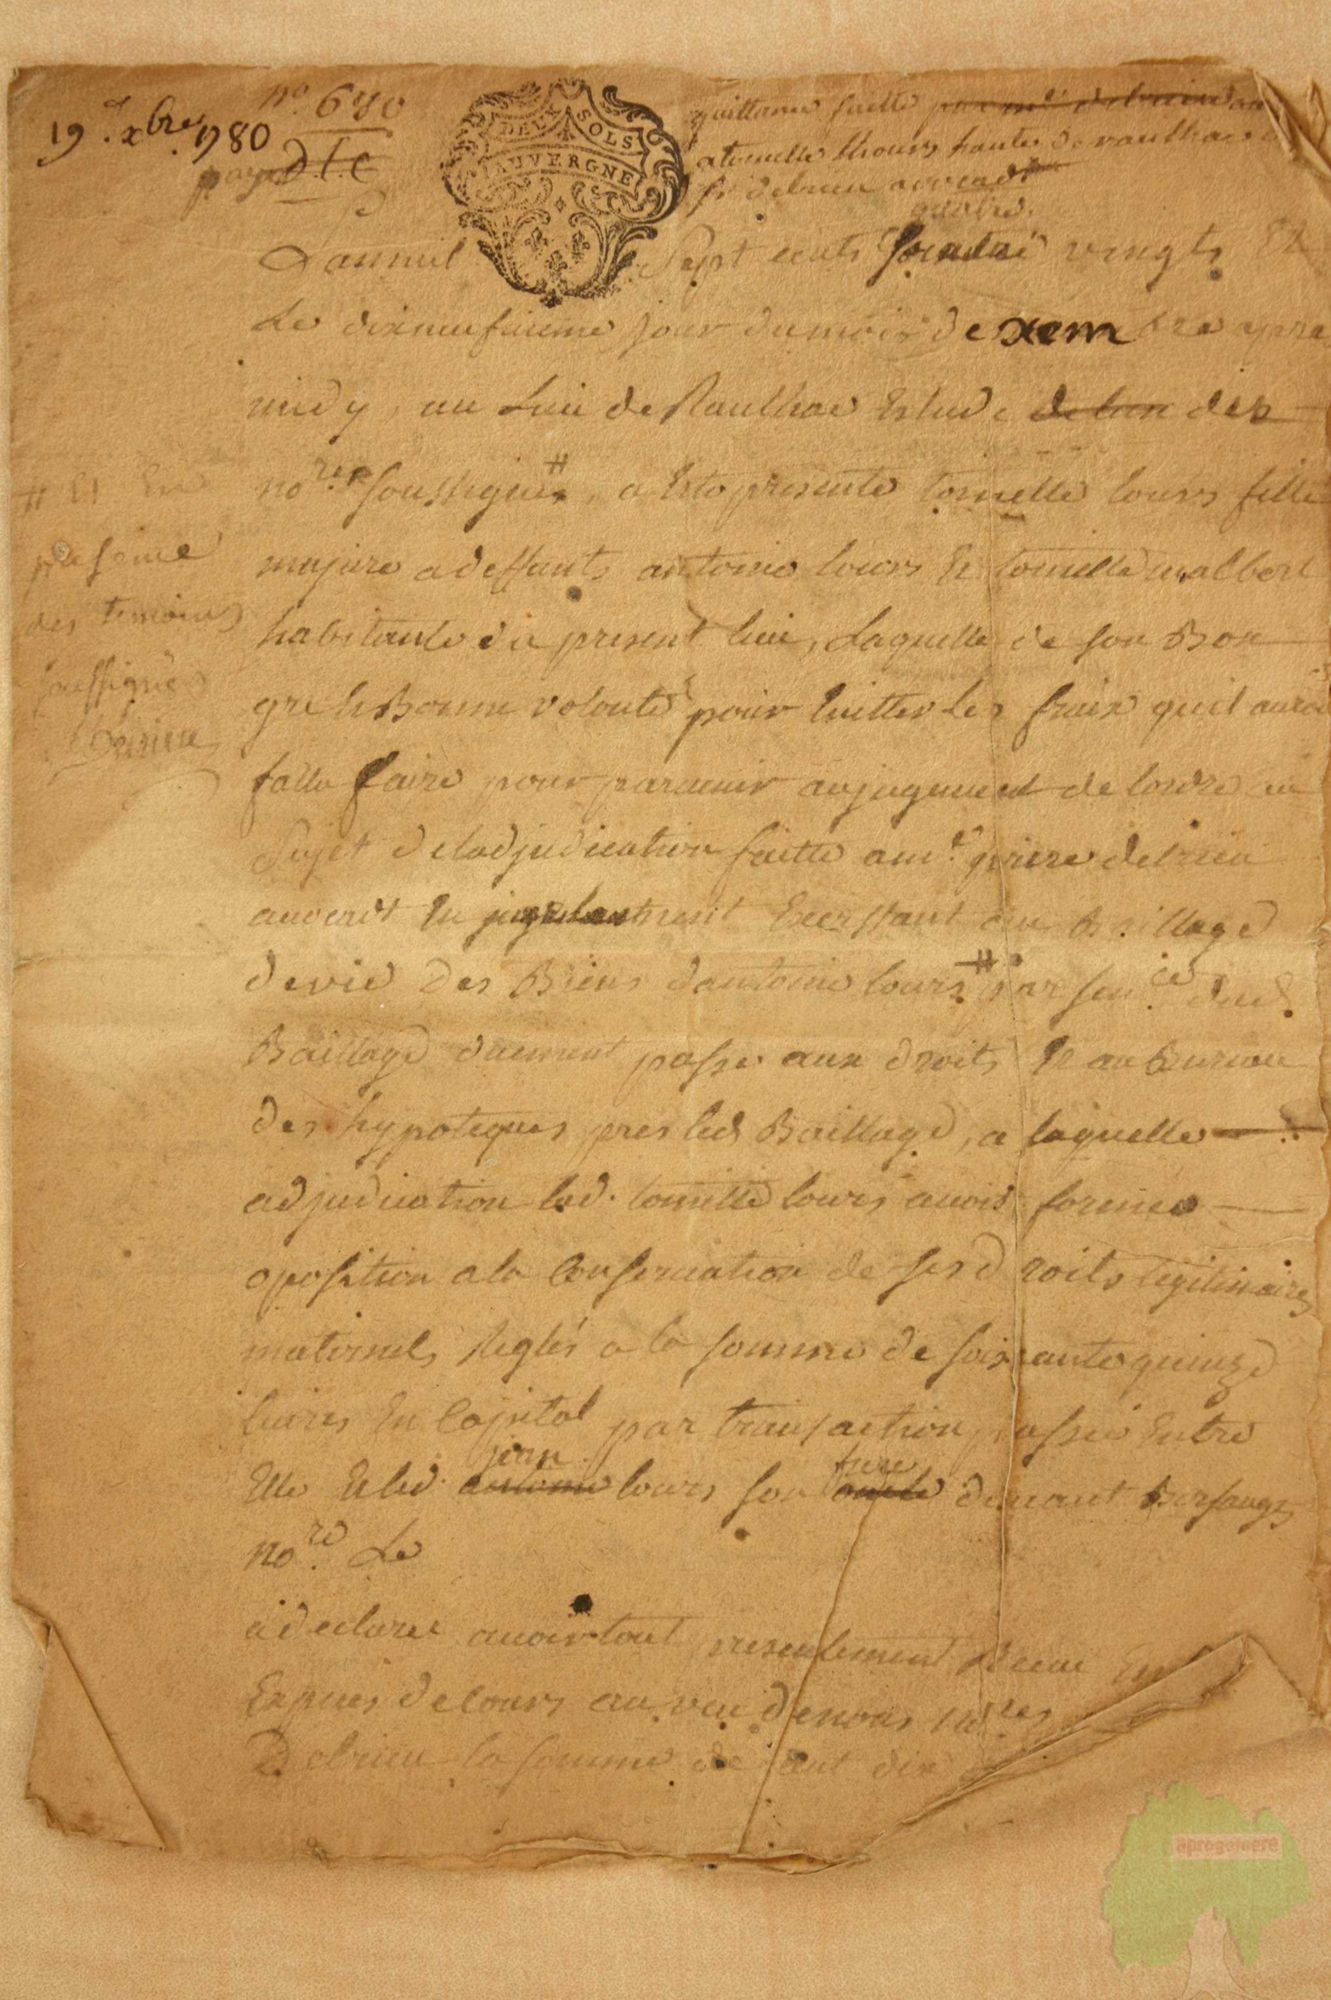 19 d xbre 1780
no 680
payé
DEUX SOLS
AUVERGNE
quittance faitte
atoinelle lhours haute de raulhac
sr debrieu avocad
quatre
Lanmil Sept cents vingts
Le dixneufvieme jour dumois de xem bre apre
midy, au Lieu de Raulhac Estude debrieu des
nores soussignes #, a Esté presente toinelle lours fille
majure a deffunts antoine lours Et toinelle malbert
habitante du present lieu, Laquelle de son Bon
gré Et Bonne volonté pour Eviter Les fraix quil auroit
fallu faire pour parvenir au jugement de lordre au
Sujet de ladjudication faitte a me pierre debrieu
avocat En Exerssant au Baillage
de vic des Biens dantoine lours # par sence dud.
Baillage duement passé aux droits Et au Bureau
des hypoteques pres led Baillage, a laquelle
adjudication lad. toinelle lours avoit formée
oposition a la Conservation de ses droits legitimaires
maternels reglés a la somme de soixante quinze
livres En Capital par transaction passée Entre
jean
frere
Elle Et led. antoine lours son devant Bersanges
nore Le
a declaré avoir tout presentement Receu En
Especes de cours au vue de nous nores
Debrieu la somme de cent dix
# Et En
presence
des temoins
soussignés
Debrieu
aprogemere